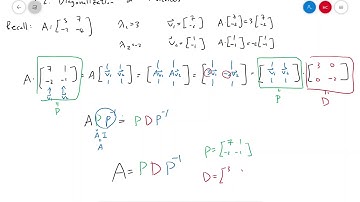 2. Diagonalization
Recall: A = λ₁=3 v₁ = [7 -1] A[7 -1] = 3[7 -1]
λ₂=-2 v₂ = [1 -1] A[1 -1] = -2[1 -1]
A · [7 1 -1 -1] = A[v₁ v₂] = [Av₁ Av₂] = [3v₁ -2v₂] = [v₁ v₂] · [3 0 0 -2]
v₁ v₂
P P D
A P P⁻¹ = P D P⁻¹
A I
A = P D P⁻¹
P = [7 1 -1 -1]
D = [3